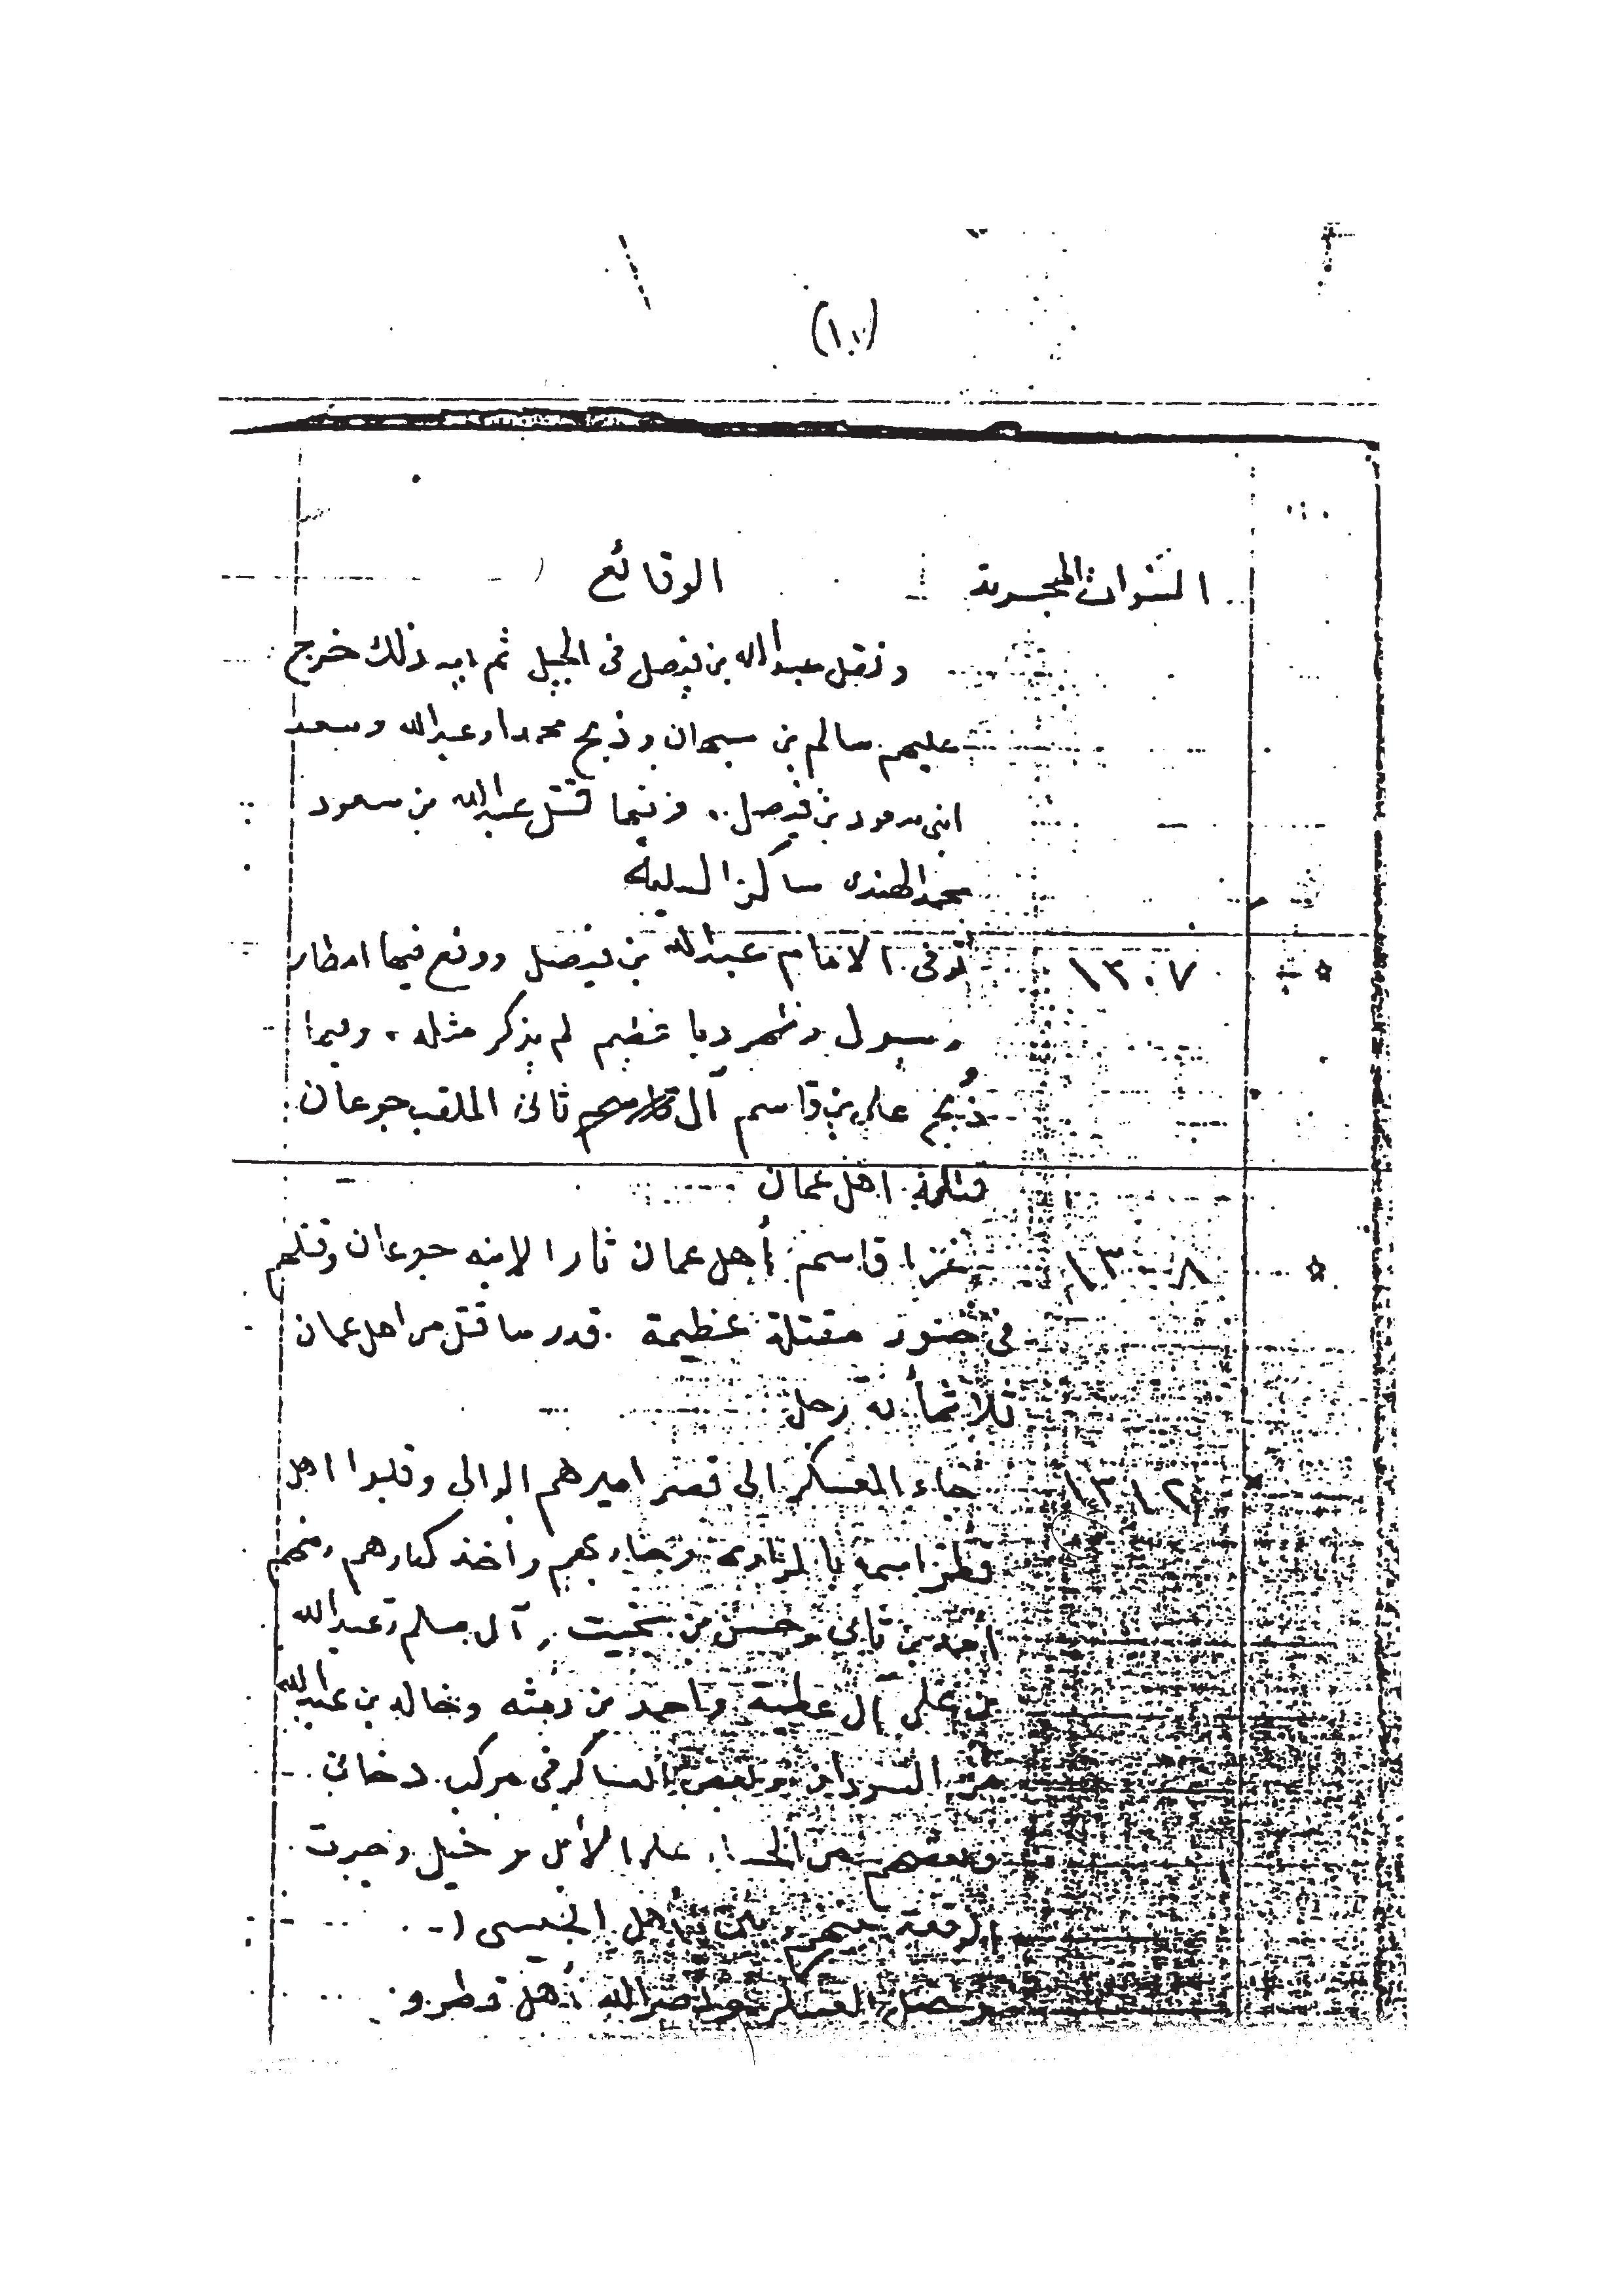 (١٠)
السنوات الهجرية الوقائع
ونقل عبدالله بن فيصل في الجبيل ثم بعد ذلك خرج
عليهم سالم بن سبهان وذبح محمدا وعبدالله وسعد
ابني سعود بن فيصل .. وفيها قتل عبدالله بن سعود
محمد الهندي ساكن السلمية
١٣٠٧ توفى الامام عبدالله بن فيصل ووقع فيها امطار
وسيول وظهر دبا عظيم لم يذكر مثله . وفيها
ذُبح علي بن قاسم آل ثاني الملقب جوعان
قتلته اهل عمان
١٣٠٨ غزا قاسم أهل عمان ثارا لإبنه جوعان وقتلهم
في مقتلة عظيمة . قدر ما قتل من اهل عمان
ثلاثمأئة رجل
١٣١٢ جاء العسكر الى قصر اميرهم الوالي وطلبوا اهل
قطر واخذ كبارهم ومنهم
احمد بن ثاني وحسن بن بخيت و آل مسلم وعبدالله
بن علي آل عطية واحمد بن وخالد بن عبدالله
من السودان وبعض العساكر في مركب دخاني
وبعضهم من الحساء على الأبل و خيل وصرت
الوقعة بينهم وبين أهل الخيسى ..
العسكر الله أهل قطر و